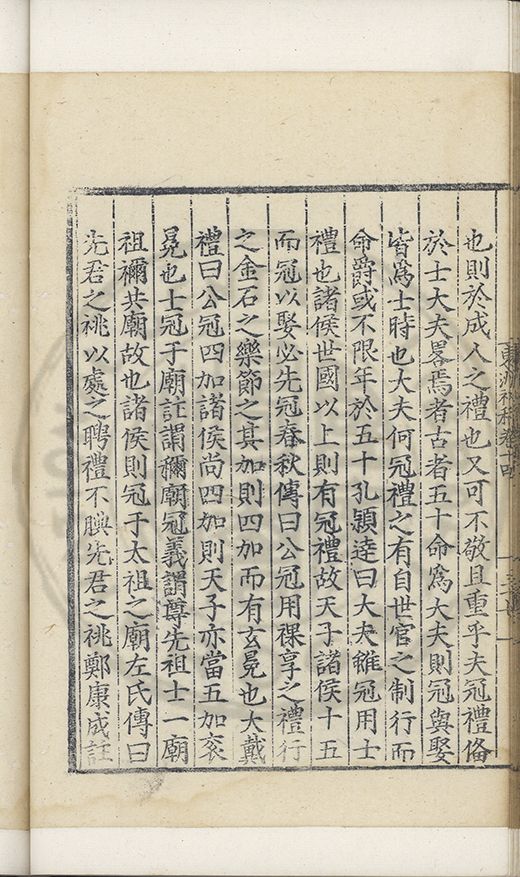 也則於成人之禮也又可不敬且重乎夫冠禮俻
於士大夫畧焉者古者五十命爲大夫則冠與娶
皆爲士時也大夫何冠禮之有自世官之制行而
命爵或不限年於五十孔穎逹曰大夫雖冠用士
禮也諸侯世國以上則有冠禮故天子諸侯十五
而冠以娶必先冠春秋傳曰公冠用祼享之禮行
之金石之樂節之其加則四加而有玄冕也大戴
禮曰公冠四加諸侯尚四加則天子亦當五加衮
冕也士冠于廟註謂禰廟冠義謂尊先祖士一廟
祖禰共廟故也諸侯則冠于太祖之廟左氏傳曰
先君之祧以處之聘禮不腆先君之祧鄭康成註